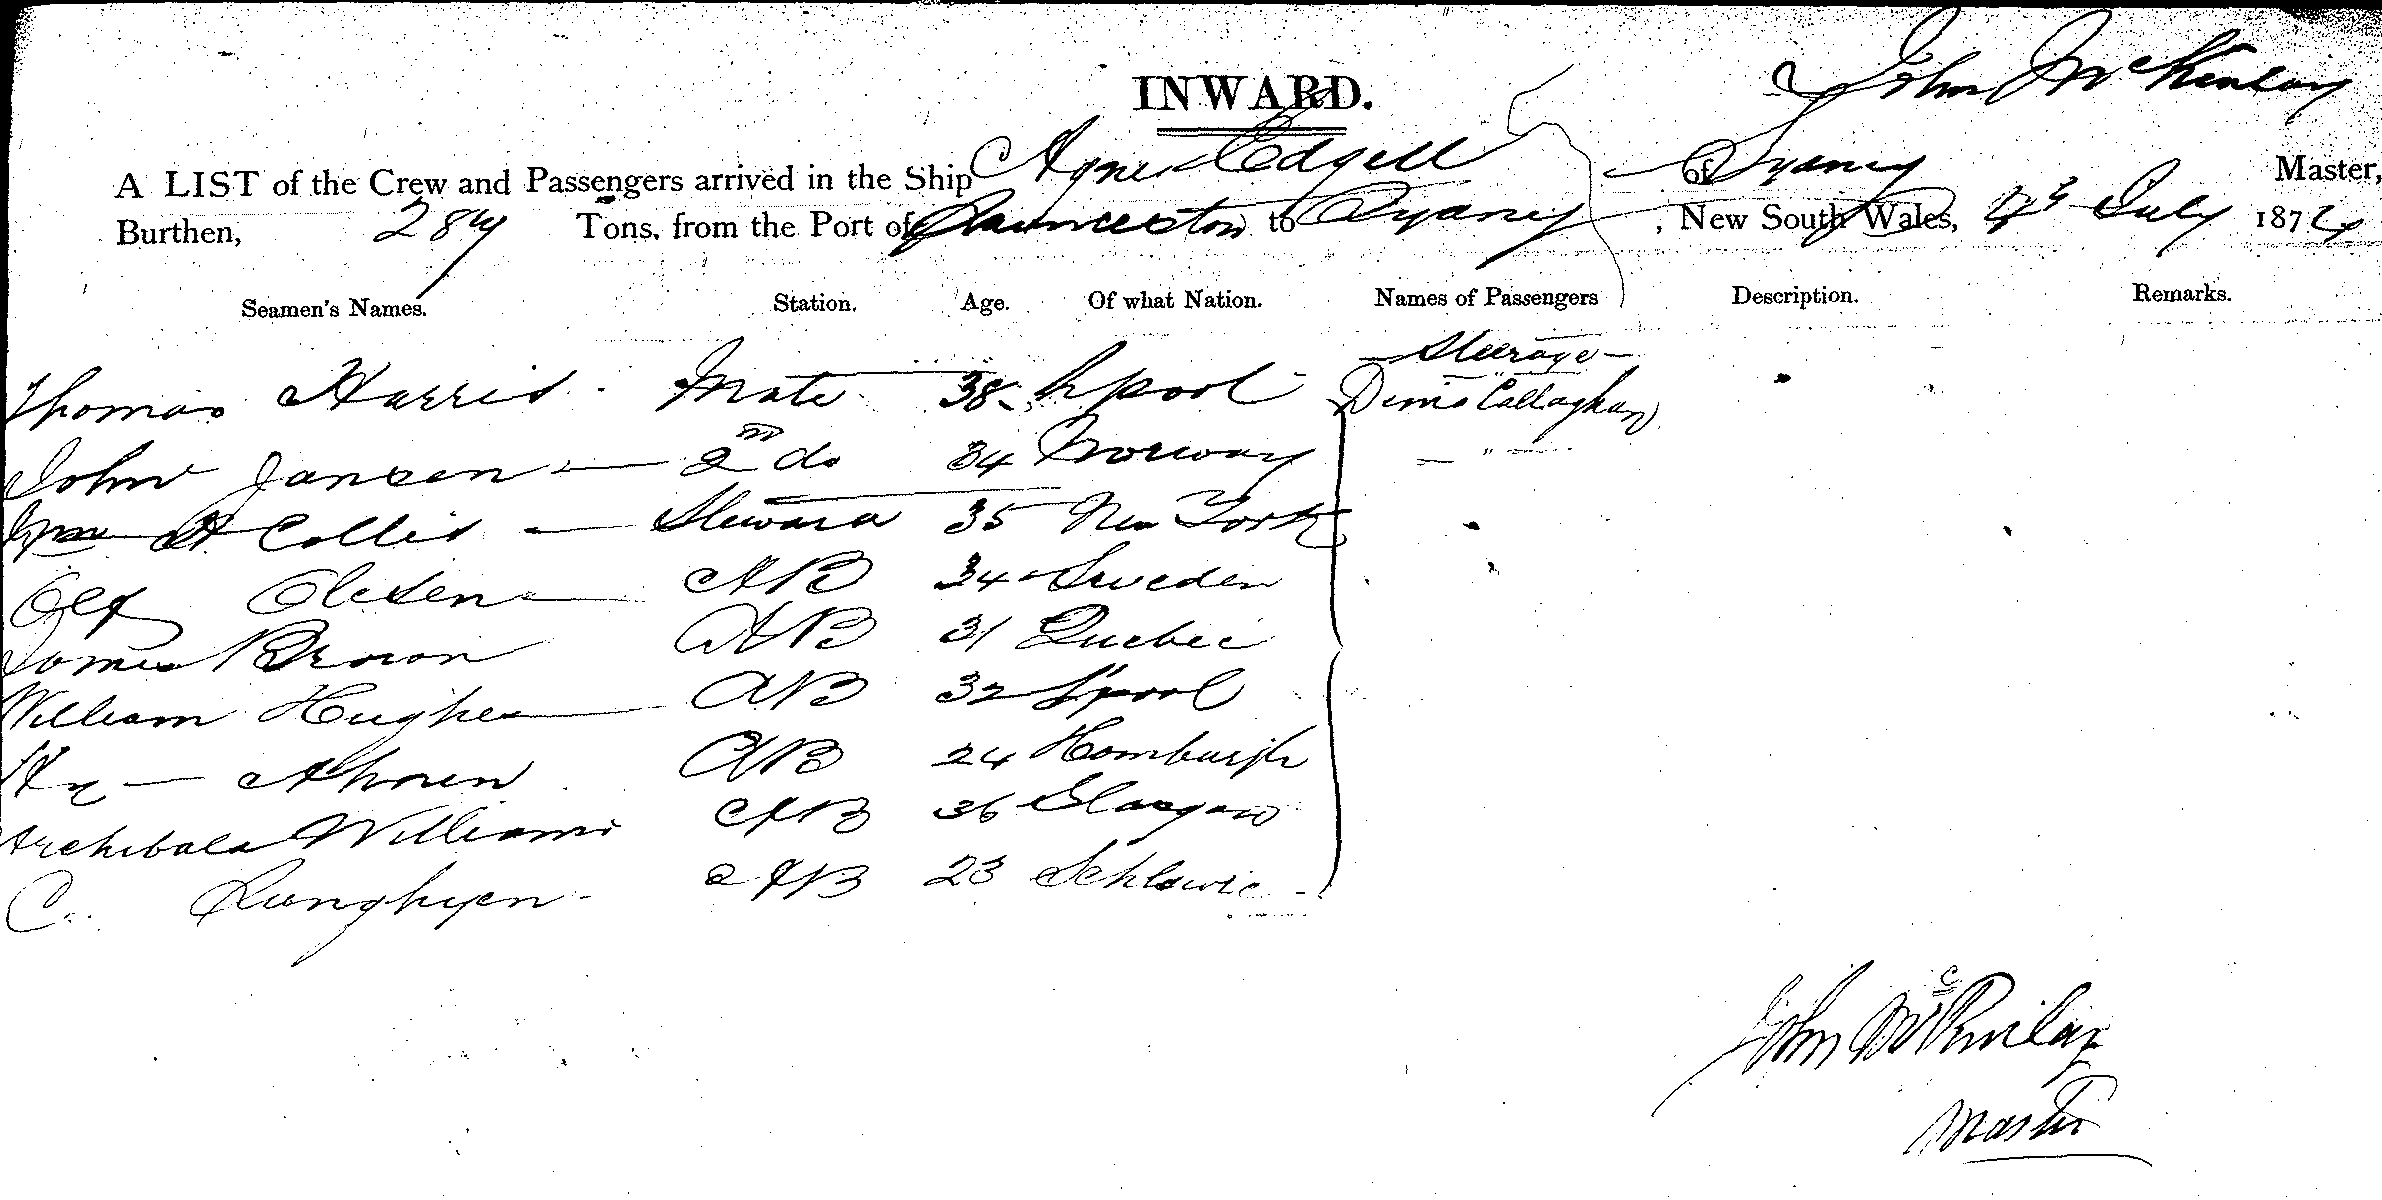 INWARD.
John McKinlay
A LIST of the Crew and Passengers arrived in the Ship Agnes Edgell of Sydney Master,
Burthen, 284 Tons, from the Port of Launceston to Sydney, New South Wales, July 187
Seamen's Names. Station. Age. Of what Nation. Names of Passengers Description. Remarks.
Steerage
Thomas Harris Mate 38 L'pool Callaghan
John Jansen 2nd do 34 Norway
Wm H Collis Steward 35 New York
Olf Olesen AB 34 Sweden
James Brown AB 31 Quebec
William Hughes AB 32 L'pool
Hy Ahren AB 24 Hamburgh
Archibald Williams AB 36 Glasgow
C. AB 23
John McKinlay
Master